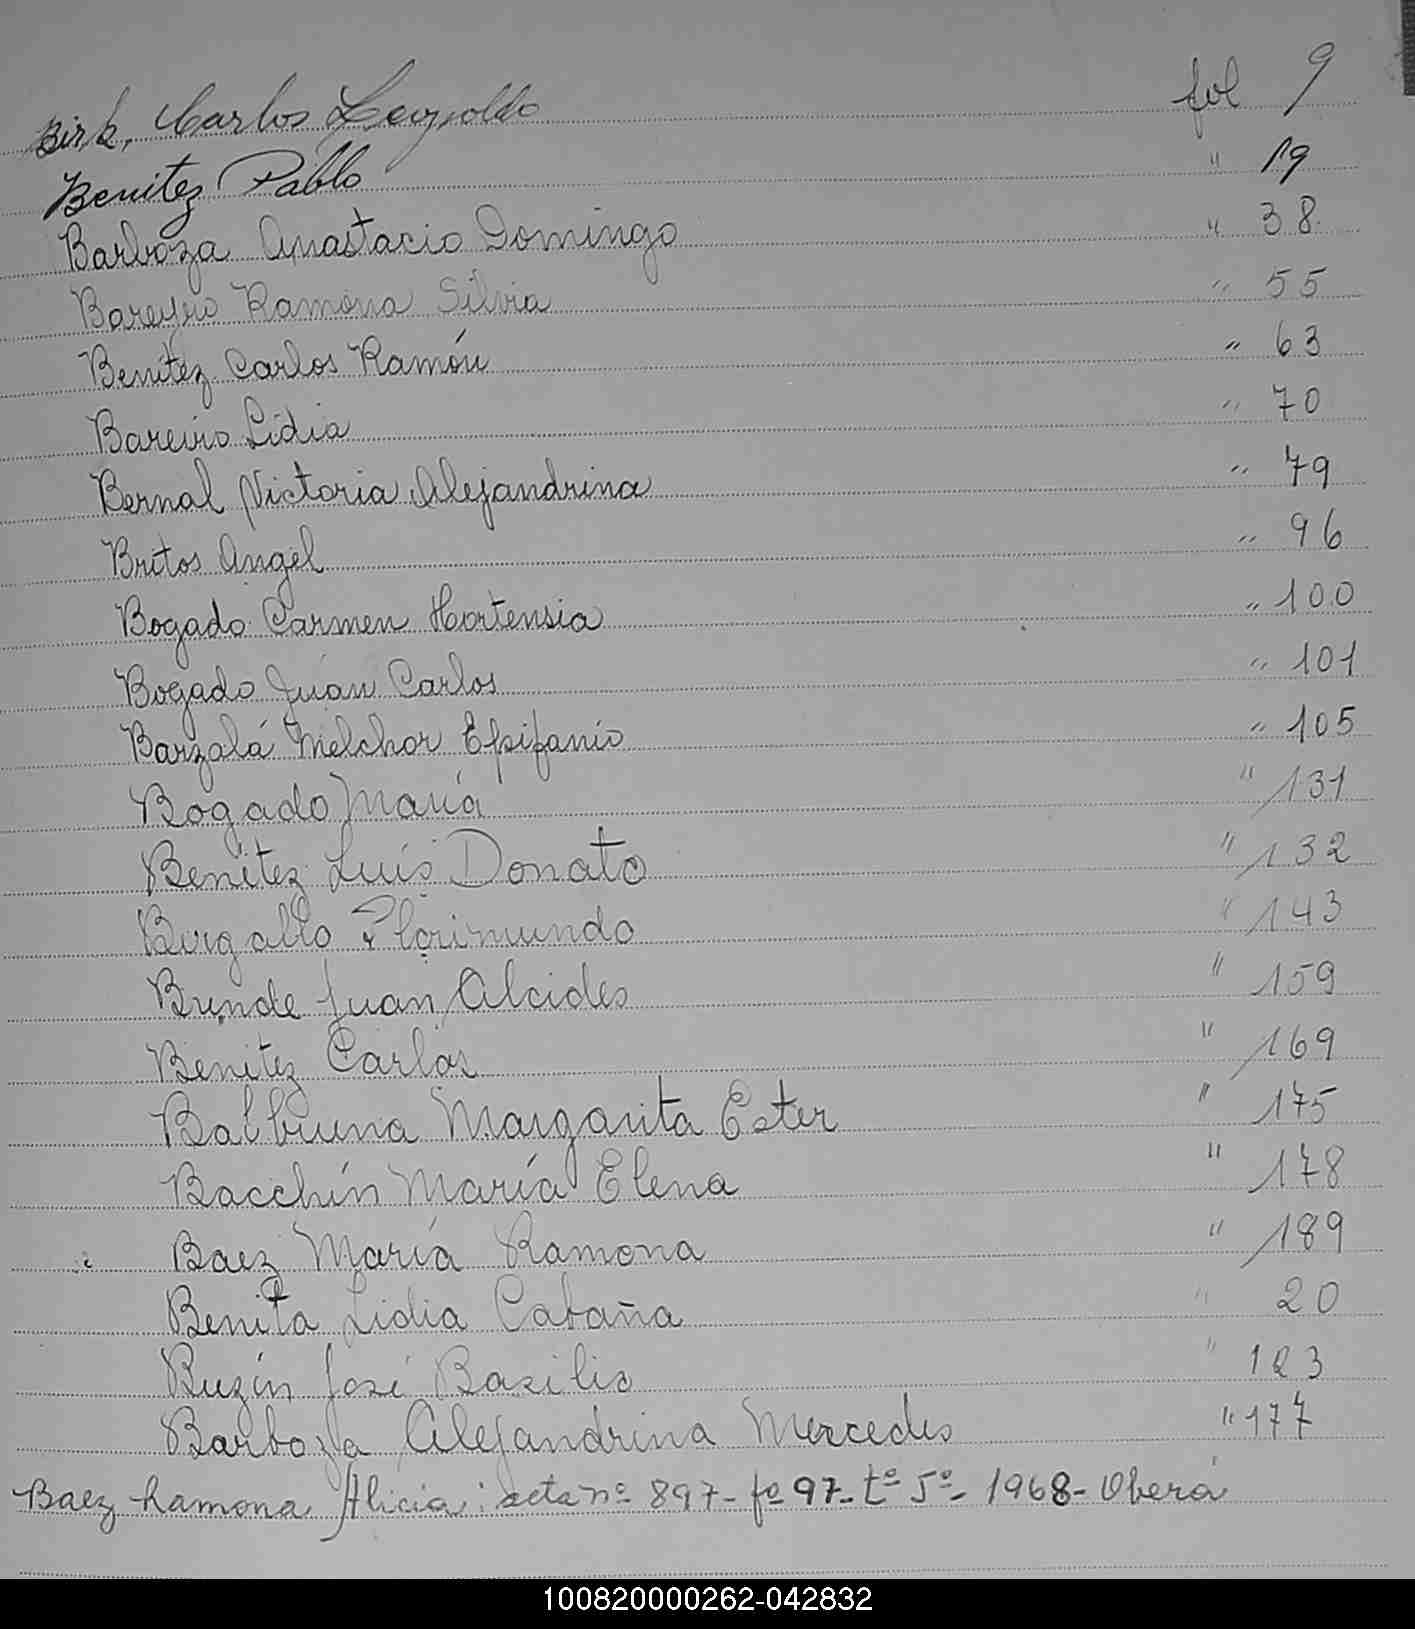 Birk, Carlos Leopoldo fol 9
Benitez Pablo " 19
Barboza Anastacio Domingo " 38
Bareyro Ramona Silvia " 55
Benítez Carlos Ramón " 63
Bareiro Lidia " 70
Bernal Victoria Alejandrina " 79
Britos Angel " 96
Bogado Carmen Hortensia " 100
Bogado Juan Carlos " 101
Barzalá Melchor Epifanio " 105
Bogado María " 131
Benitez Luis Donato " 132
Florimundo " 143
Brunde Juan Alcides " 159
Benitez Carlos " 169
Balbuena Margarita Ester " 175
Bacchín María Elena " 178
Baez María Ramona " 189
Benita Lidia Cabaña " 20
Buzín José Basilio " 123
Barboza Alejandrina Mercedes " 177
Baez Ramona Alicia: acta nº 897- fº 97- tº 5º- 1968- Oberá
100820000262-042832